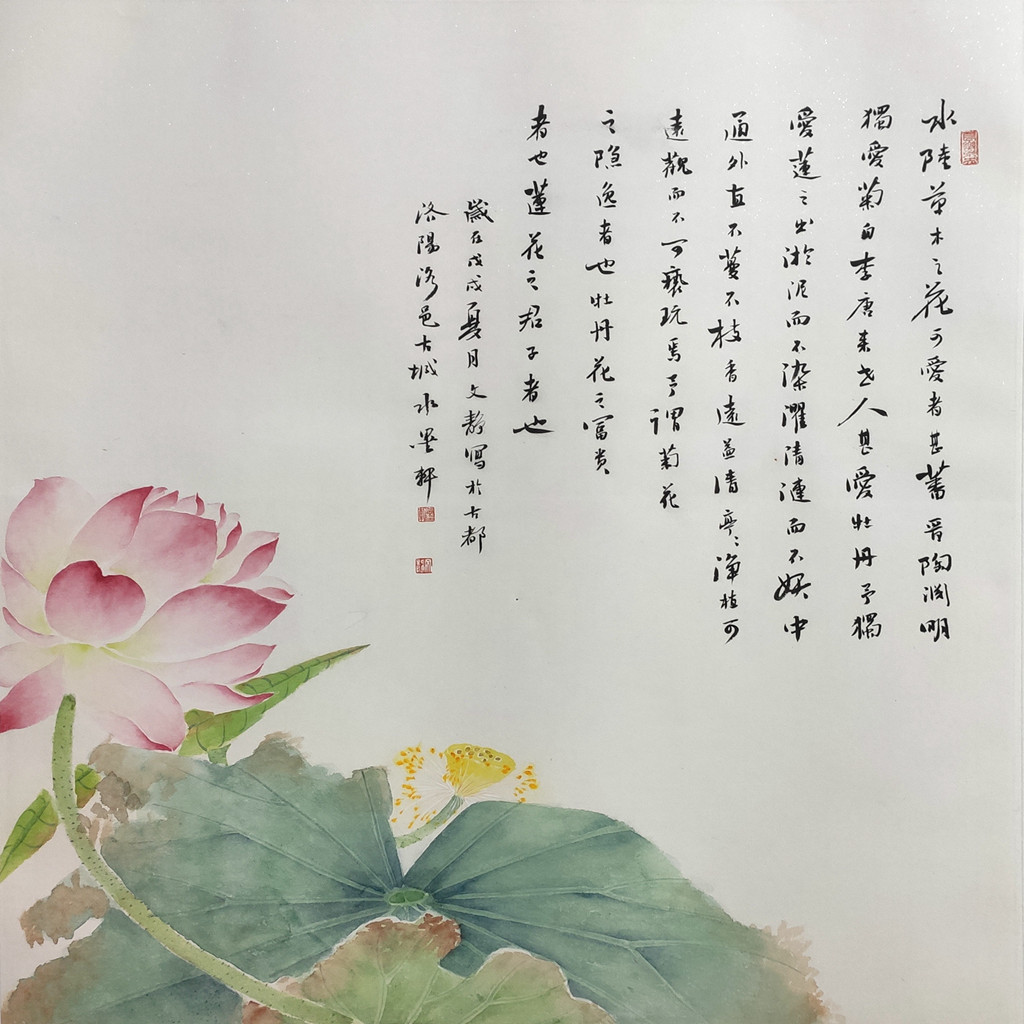 水陸草木之花可愛者甚蕃晋陶渊明
獨愛菊自李唐来世人甚愛牡丹予獨
愛蓮之出淤泥而不染濯清漣而不妖中
通外直不蔓不枝香遠益清亭〻淨植可
遠觀而不可亵玩焉予謂菊花
之隐逸者也牡丹花之富贵
者也蓮花之君子者也
歲在戊戌夏月文静寫於古都
洛陽洛邑古城水墨軒